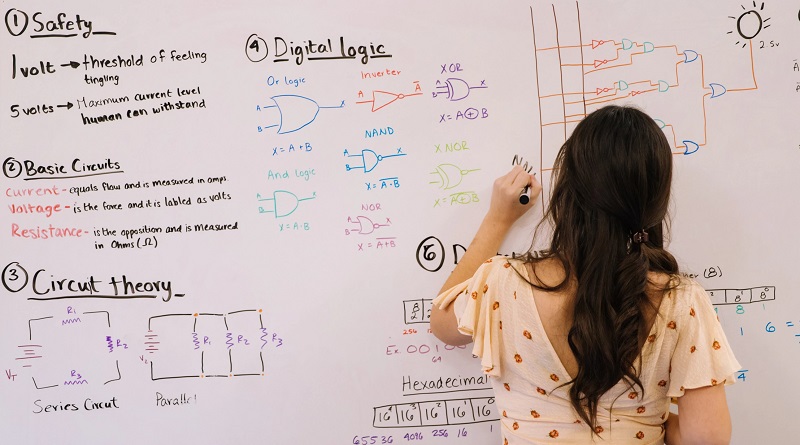 ① Safety
1 volt → threshold of feeling
tingling
5 volts → Maximum current level
human can withstand
② Basic Circuits
Current - equals flow and is measured in amps
Voltage - is the force and it is labled as volts
Resistance - is the opposition and is measured
in Ohms (Ω)
③ Circuit theory
R₁
R₂
R₃
V_T
Series Circuit
R₁
R₂
R₃
Parallel
④ Digital logic
Or logic
A
B
X
X = A + B
Inverter
A
A̅
XOR
A
B
X
X = A ⊕ B
And logic
A
B
X
X = A · B
NAND
A
B
X
X = \overline{A · B}
NOR
A
B
X
X = \overline{A + B}
X NOR
X = \overline{A ⊕ B}
2.5v
⑥ D
(8)
8¹ 8⁰
8 1
6 =
256
Ex. 00
64
Hexadecimal
16⁴ 16³ 16² 16¹ 16⁰
65536 4096 256 16 1